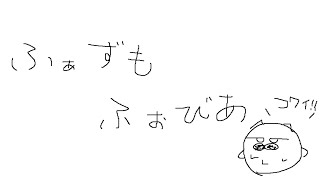 ふぁずも
ふぉびあ
コワイ!!